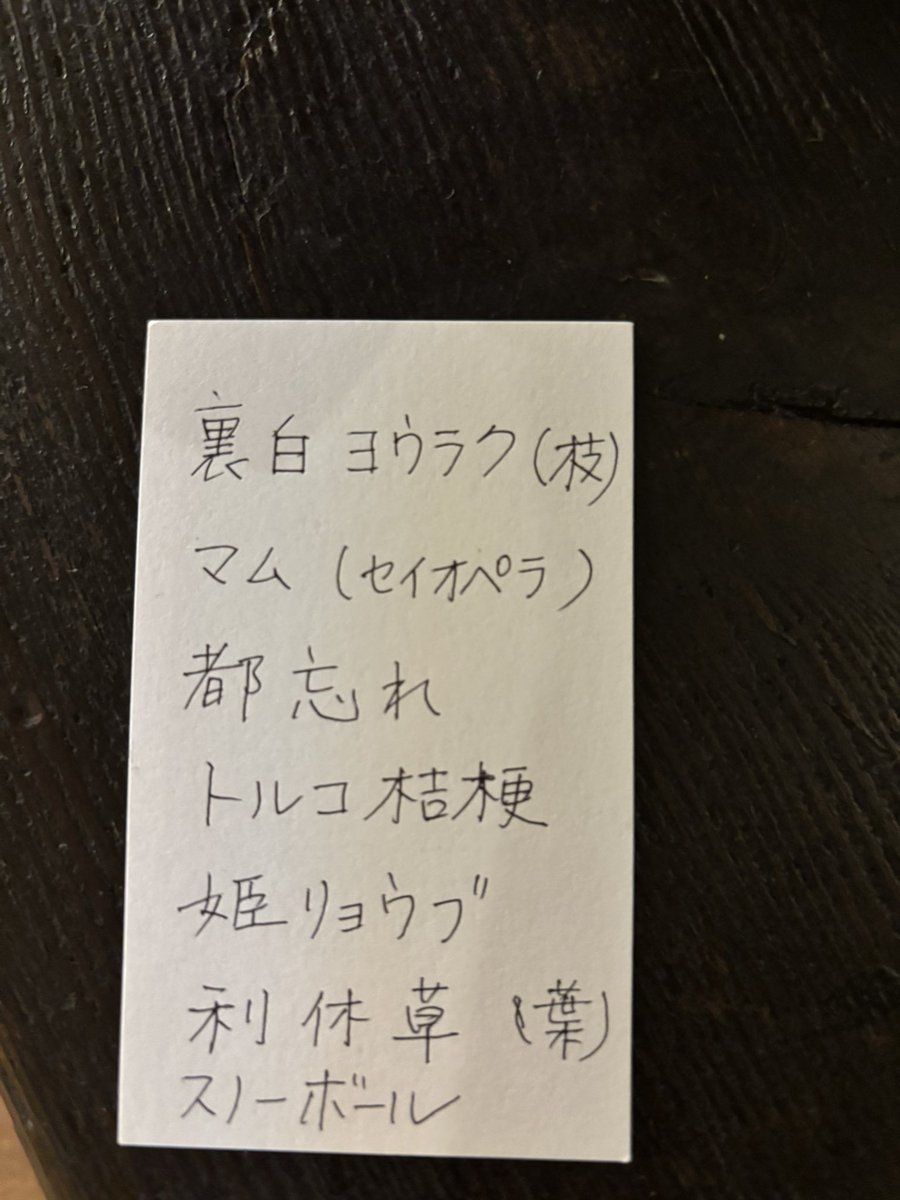 裏白ヨウラク(枝)
マム(セイオペラ)
都忘れ
トルコ桔梗
姫リョウブ
利休草(葉)
スノーボール